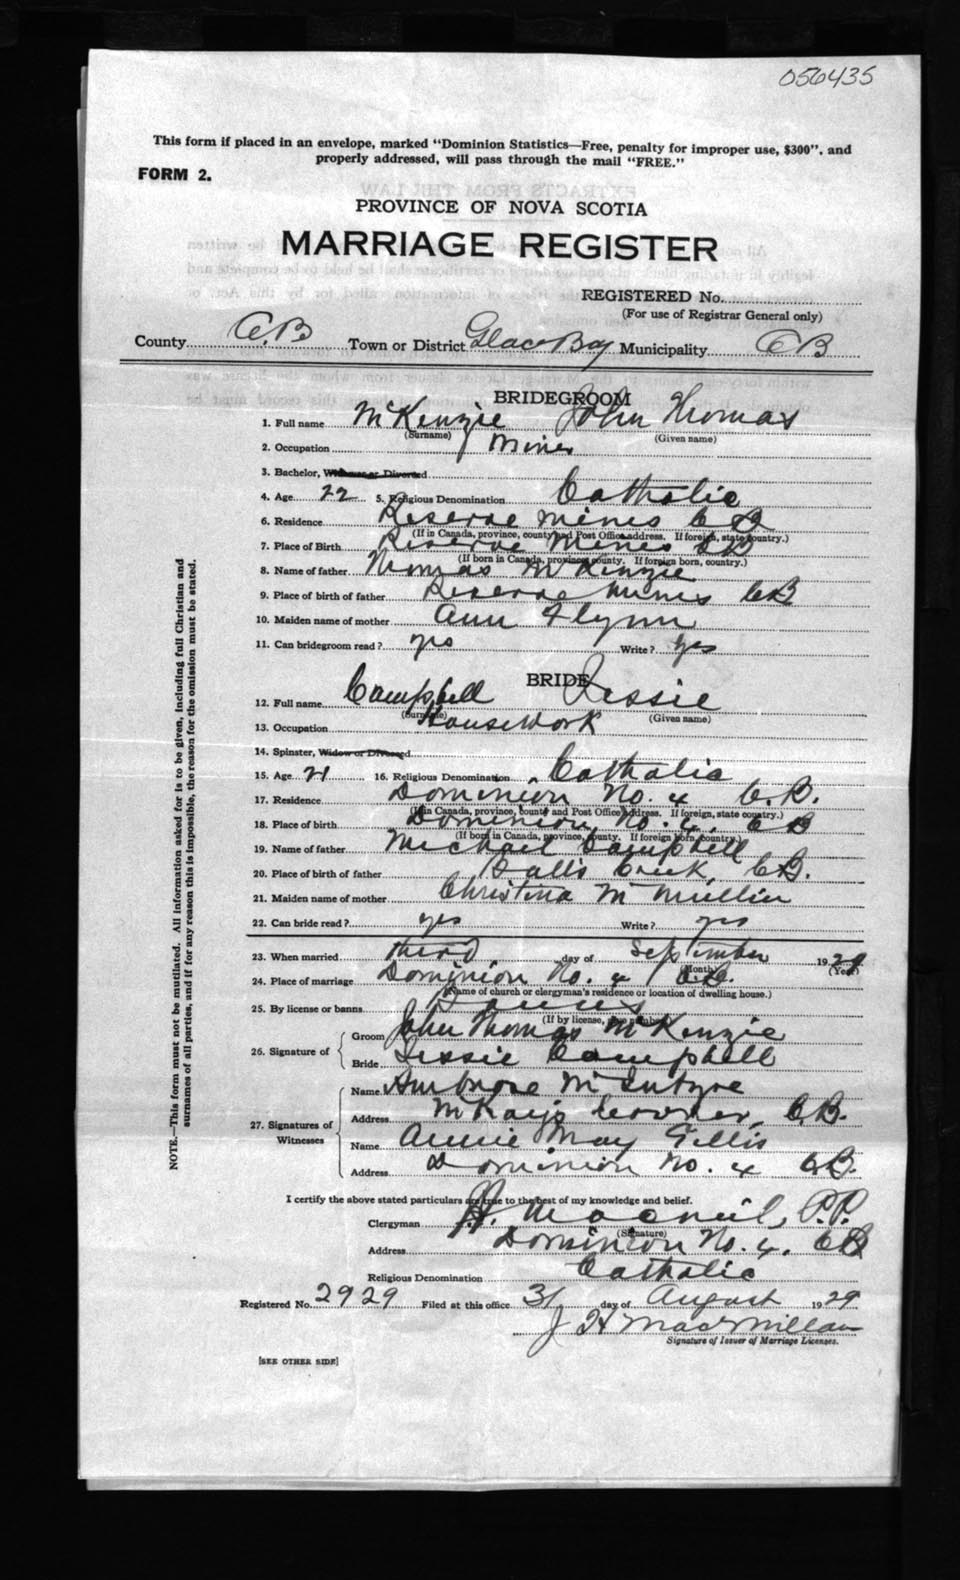 056435
This form if placed in an envelope, marked "Dominion Statistics—Free, penalty for improper use, $300", and
properly addressed, will pass through the mail "FREE."
FORM 2.
PROVINCE OF NOVA SCOTIA
MARRIAGE REGISTER
REGISTERED No.
(For use of Registrar General only)
County C.B. Town or District Glace Bay Municipality C B
BRIDEGROOM
1. Full name McKenzie John Thomas
(Surname) (Given name)
2. Occupation Miner
3. Bachelor, Widower or Divorced
4. Age 22 5. Religious Denomination Catholic
6. Residence Reserve Mines C B
(If in Canada, province, county and Post Office address. If foreign, state country.)
7. Place of Birth Reserve Mines CB
(If born in Canada, province, county. If foreign born, country.)
8. Name of father Thomas McKenzie
9. Place of birth of father Reserve Mines CB
10. Maiden name of mother Ann Flynn
11. Can bridegroom read? yes Write? yes
BRIDE
12. Full name Campbell Jessie
(Surname) (Given name)
13. Occupation Housework
14. Spinster, Widow or Divorced
15. Age 21 16. Religious Denomination Catholic
17. Residence Dominion No. 4 C.B.
(If in Canada, province, county and Post Office address. If foreign, state country.)
18. Place of birth Dominion No. 4, CB
(If born in Canada, province, county. If foreign born, country.)
19. Name of father Michael Campbell
20. Place of birth of father Balls Creek, C.B.
21. Maiden name of mother Christina McMullin
22. Can bride read? yes Write? yes
23. When married third day of September 1929
(Month) (Year)
24. Place of marriage Dominion No. 4 C.B.
(Name of church or clergyman's residence or location of dwelling house.)
25. By license or banns Banns
(If by license, give number)
26. Signature of Groom John Thomas McKenzie
Bride Jessie Campbell
27. Signatures of Witnesses
Name Ambrose McIntyre
Address McKay's Corner, C.B.
Name Annie May Gillis
Address Dominion No. 4 C.B.
I certify the above stated particulars are true to the best of my knowledge and belief.
Clergyman MacNeil, P.P.
(Signature)
Address Dominion No. 4, CB
Religious Denomination Catholic
Registered No. 2929 Filed at this office 31 day of August 1929
J H MacMillan
Signature of Issuer of Marriage Licenses.
[SEE OTHER SIDE]
NOTE.—This form must not be mutilated. All information asked for is to be given, including full Christian and
surnames of all parties, and if for any reason this is impossible, the reason for the omission must be stated.